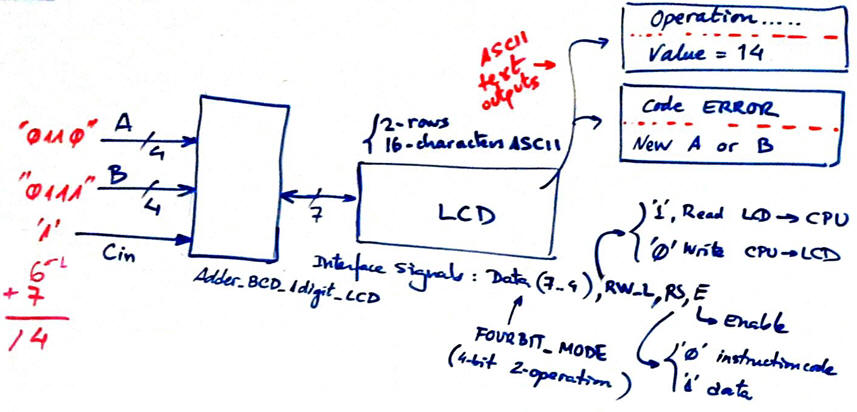 Operation.....
Value = 14
ASCII
text
outputs
Code ERROR
New A or B
2-rows
16-characters ASCII
"0110"
A
4
"0111"
B
4
'1'
Cin
7
LCD
Adder_BCD_1digit_LCD
Interface signals: Data (7_4), RW_L, RS, E
'1', Read LCD → CPU
'0' Write CPU → LCD
Enable
FOURBIT_MODE
(4-bit 2-operation)
'0' instruction code
'1' data
6
+ 7
14